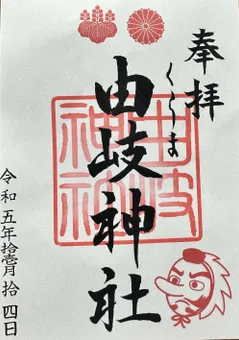 奉拝
くらま
由岐神社
由岐
神社
令和五年拾壱月拾四日